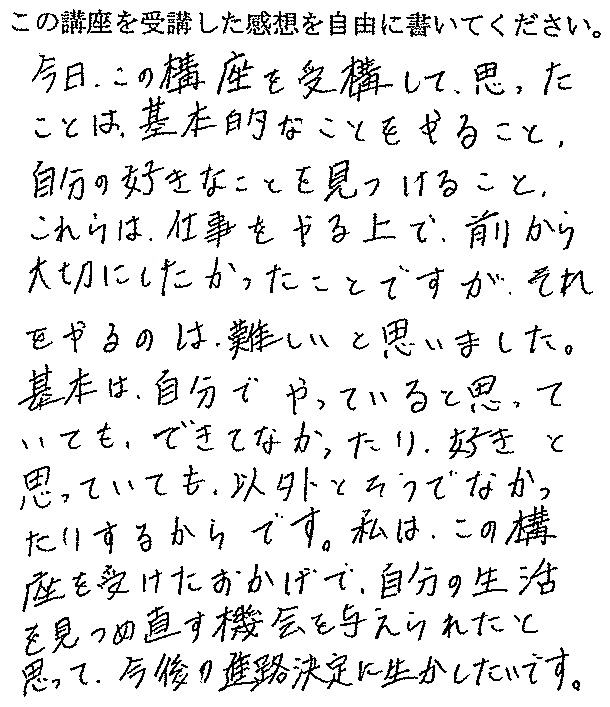 この講座を受講した感想を自由に書いてください。
今日、この構座を受構して、思った
ことは、基本的なことをやること、
自分の好きなことを見つけること、
これらは、仕事をやる上で、前から
大切にしたかったことですが、それ
をやるのは、難しいと思いました。
基本は、自分でやっていると思って
いても、できてなかったり、好きと
思っていても、以外とそうでなかっ
たりするからです。私は、この構
座を受けたおかげで、自分の生活
を見つめ直す機会を与えられたと
思って、今後の進路決定に生かしたいです。